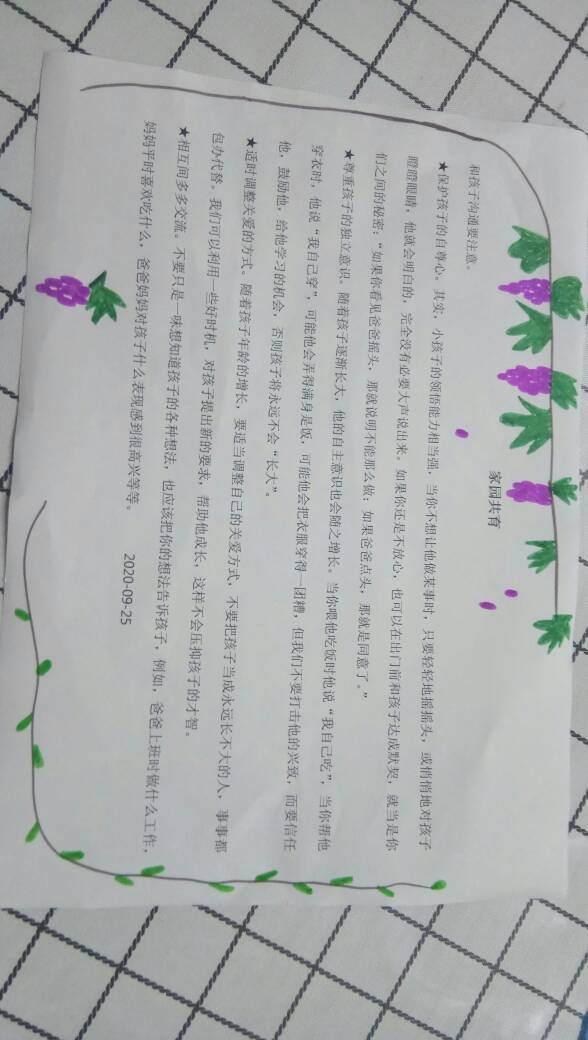 家园共育
和孩子沟通要注意。
★保护孩子的自尊心。其实，小孩子的领悟能力相当强，当你不想让他做某事时，只要轻轻地摇摇头，或悄悄地对孩子
瞪瞪眼睛，他就会明白的，完全没有必要大声说出来。如果你还是不放心，也可以在出门前和孩子达成默契，就当是你
们之间的秘密：“如果你看见爸爸摇头，那就说明不能那么做；如果爸爸点头，那就是同意了。”
★尊重孩子的独立意识。随着孩子逐渐长大，他的自主意识也会随之增长。当你喂他吃饭时他说“我自己吃”，当你帮他
穿衣时，他说“我自己穿”，可能他会弄得满身是饭，可能他会把衣服穿得一团糟，但我们不要打击他的兴致，而要信任
他，鼓励他，给他学习的机会，否则孩子将永远不会“长大”。
★适时调整关爱的方式。随着孩子年龄的增长，要适当调整自己的关爱方式，不要把孩子当成永远长不大的人，事事都
包办代替。我们可以利用一些好时机，对孩子提出新的要求，帮助他成长，这样不会压抑孩子的才智。
★相互间多多交流。不要只是一味想知道孩子的各种想法，也应该把你的想法告诉孩子，例如，爸爸上班时做什么工作，
妈妈平时喜欢吃什么，爸爸妈妈对孩子什么表现感到很高兴等等。
2020-09-25